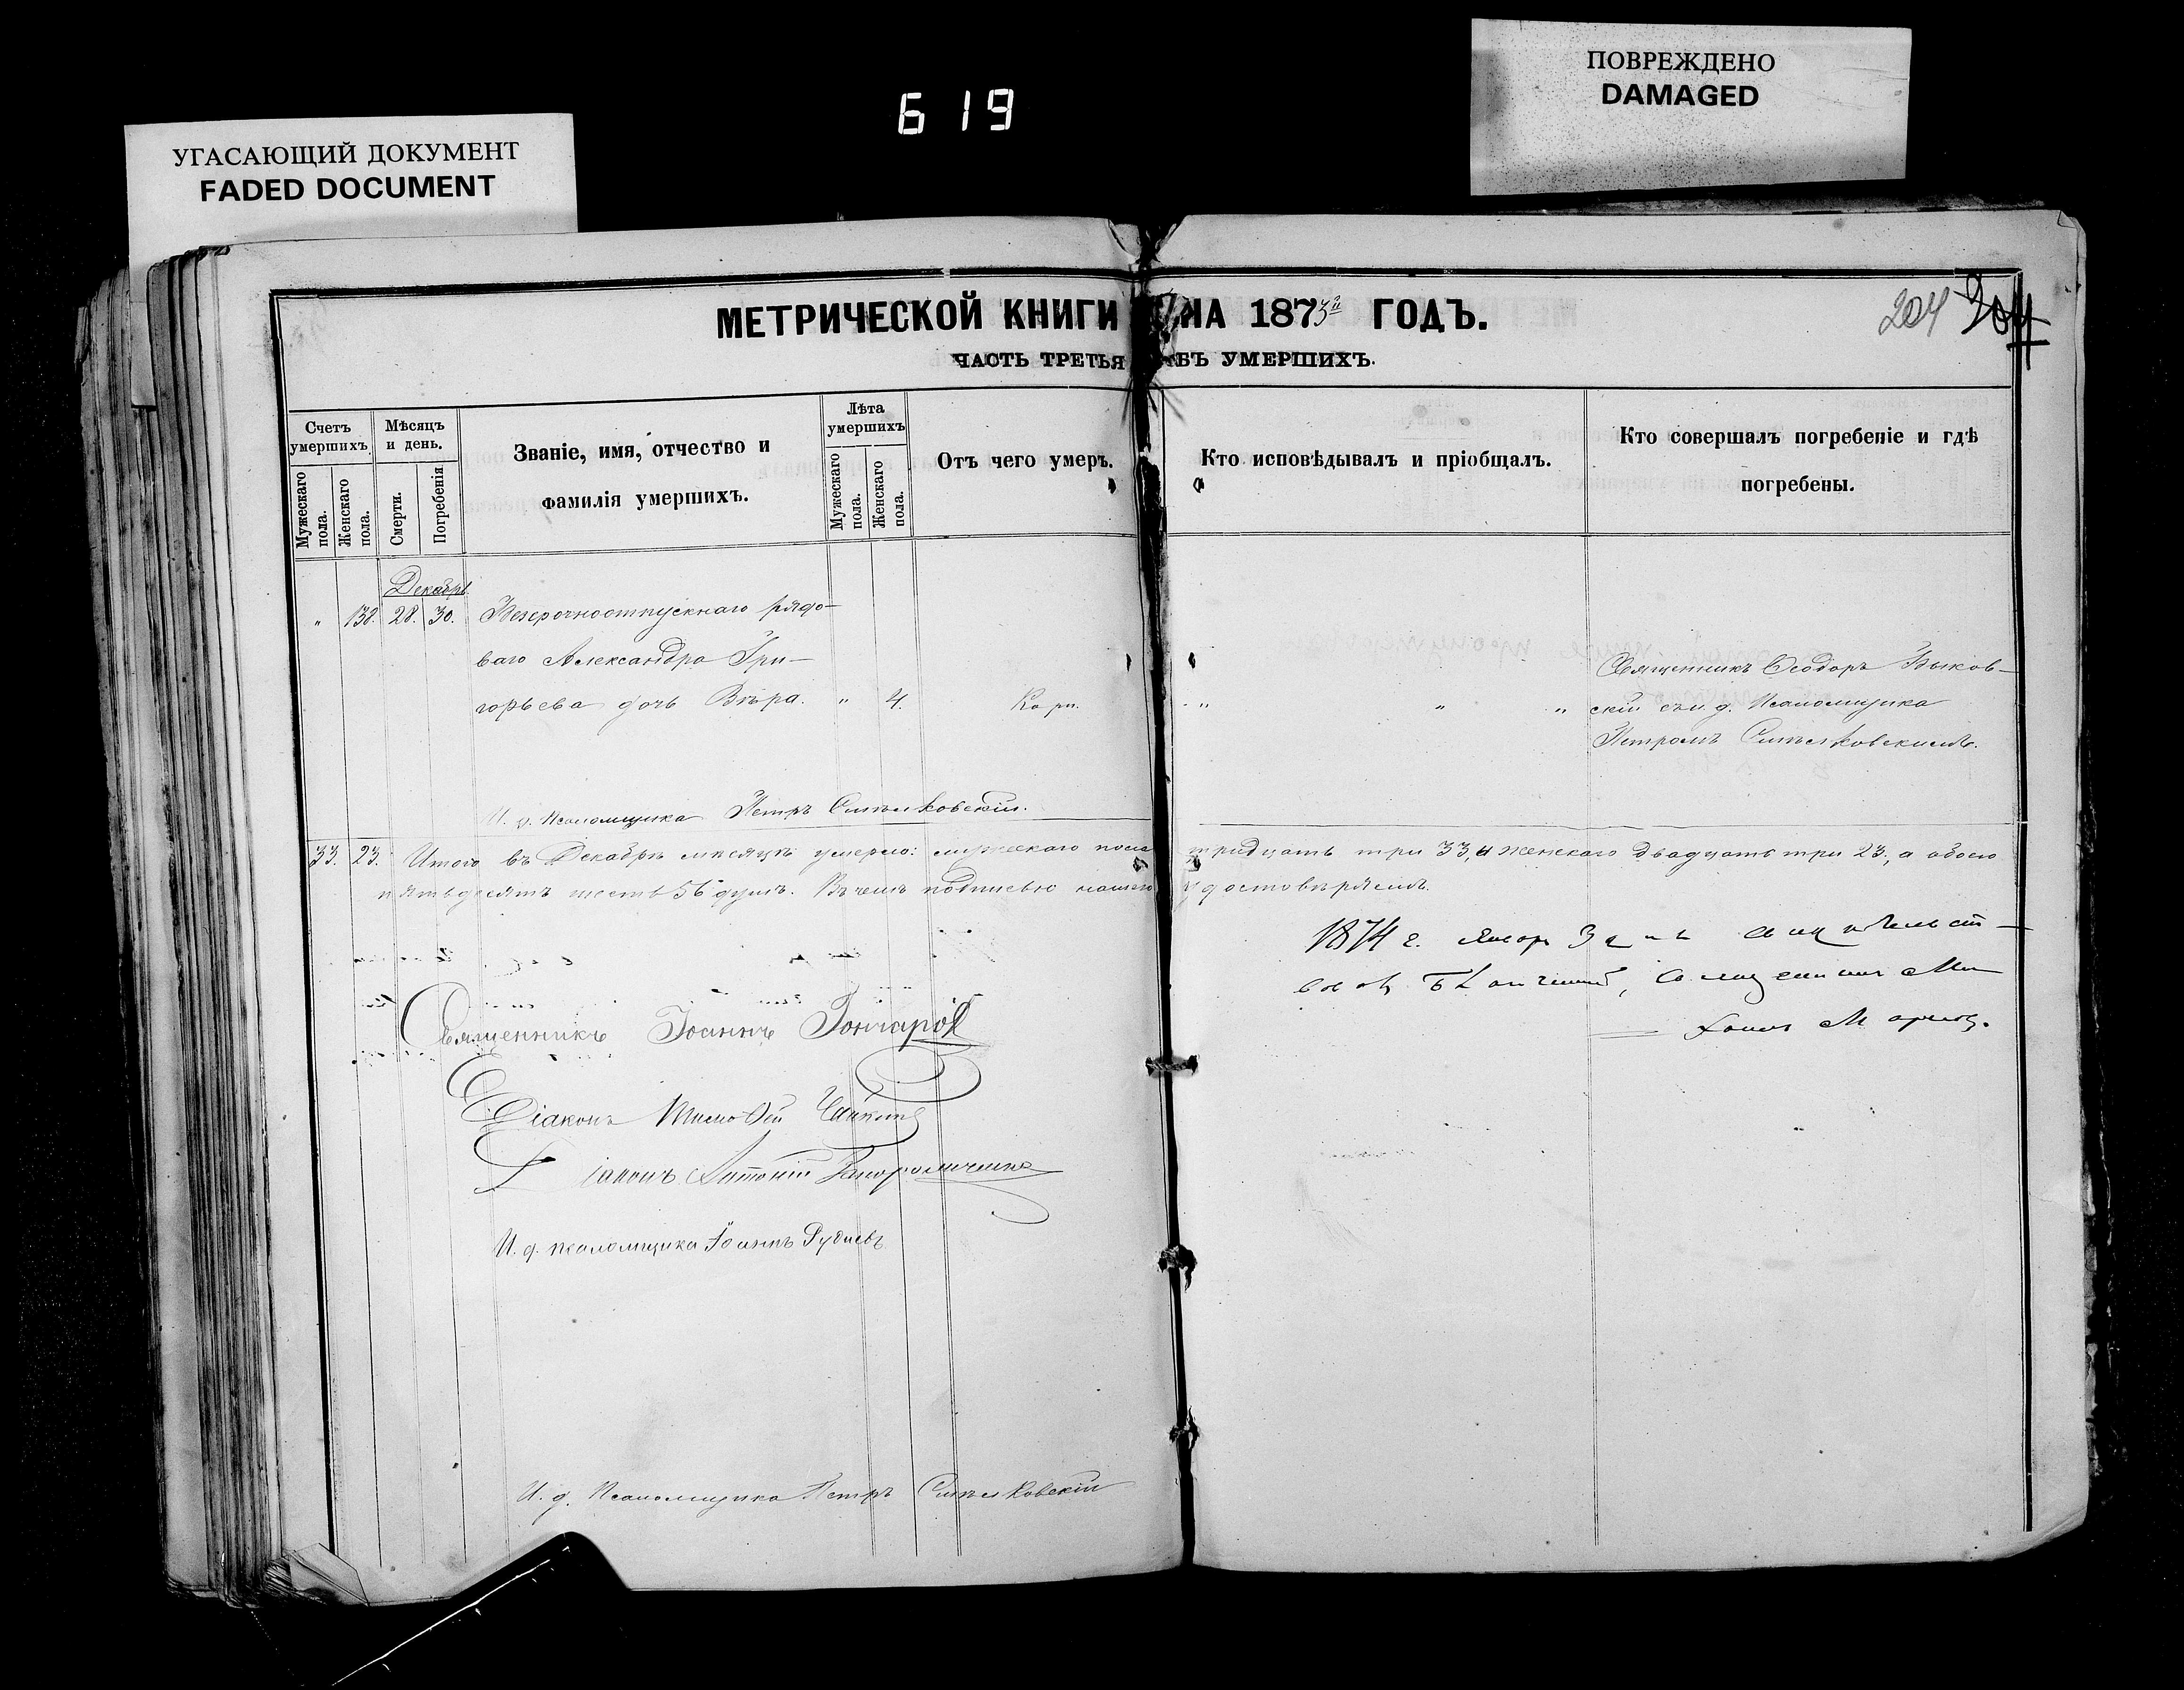 ПОВРЕЖДЕНО
DAMAGED
6 19
УГАСАЮЩИЙ ДОКУМЕНТ
FADED DOCUMENT
МЕТРИЧЕСКОЙ КНИГИ НА 1873й ГОДЪ.
204 204
ЧАСТЬ ТРЕТЬЯ ОБЪ УМЕРШИХЪ.
Счетъ умершихъ.
Мужескаго пола.
Женскаго пола.
Мѣсяцъ и день.
Смерти.
Погребенія
Званіе, имя, отчество и
фамилія умершихъ.
Лѣта умершихъ
Мужескаго пола.
Женскаго пола.
Отъ чего умеръ.
Кто исповѣдывалъ и пріобщалъ.
Кто совершалъ погребеніе и гдѣ
погребены.
Декабрь
" 138. 28. 30. Безсрочноотпускнаго рядо-
ваго Александра Гри-
горьева дочь Вѣра. " 4. Кори. " " "
Священникъ Ѳеодоръ Быков-
скій съ и. д. Псаломщика
Петромъ
И. д. Псаломщика Петръ
33. 23. Итого въ Декабрѣ мѣсяцѣ умерло: мужескаго пола тридцать три 33, и женскаго двадцать три 23, а обоего
пятьдесятъ шесть 56 душъ. Въ чемъ подписью нашею удостовѣряемъ.
1874 г. Январ 3 дня свидѣтельст-
Священникъ Іоаннъ Гончаровъ
Діаконъ Тимоѳей
Діаконъ Антоній
И. д. псаломщика Іоаннъ Рудневъ
И. д. Псаломщика Петръ